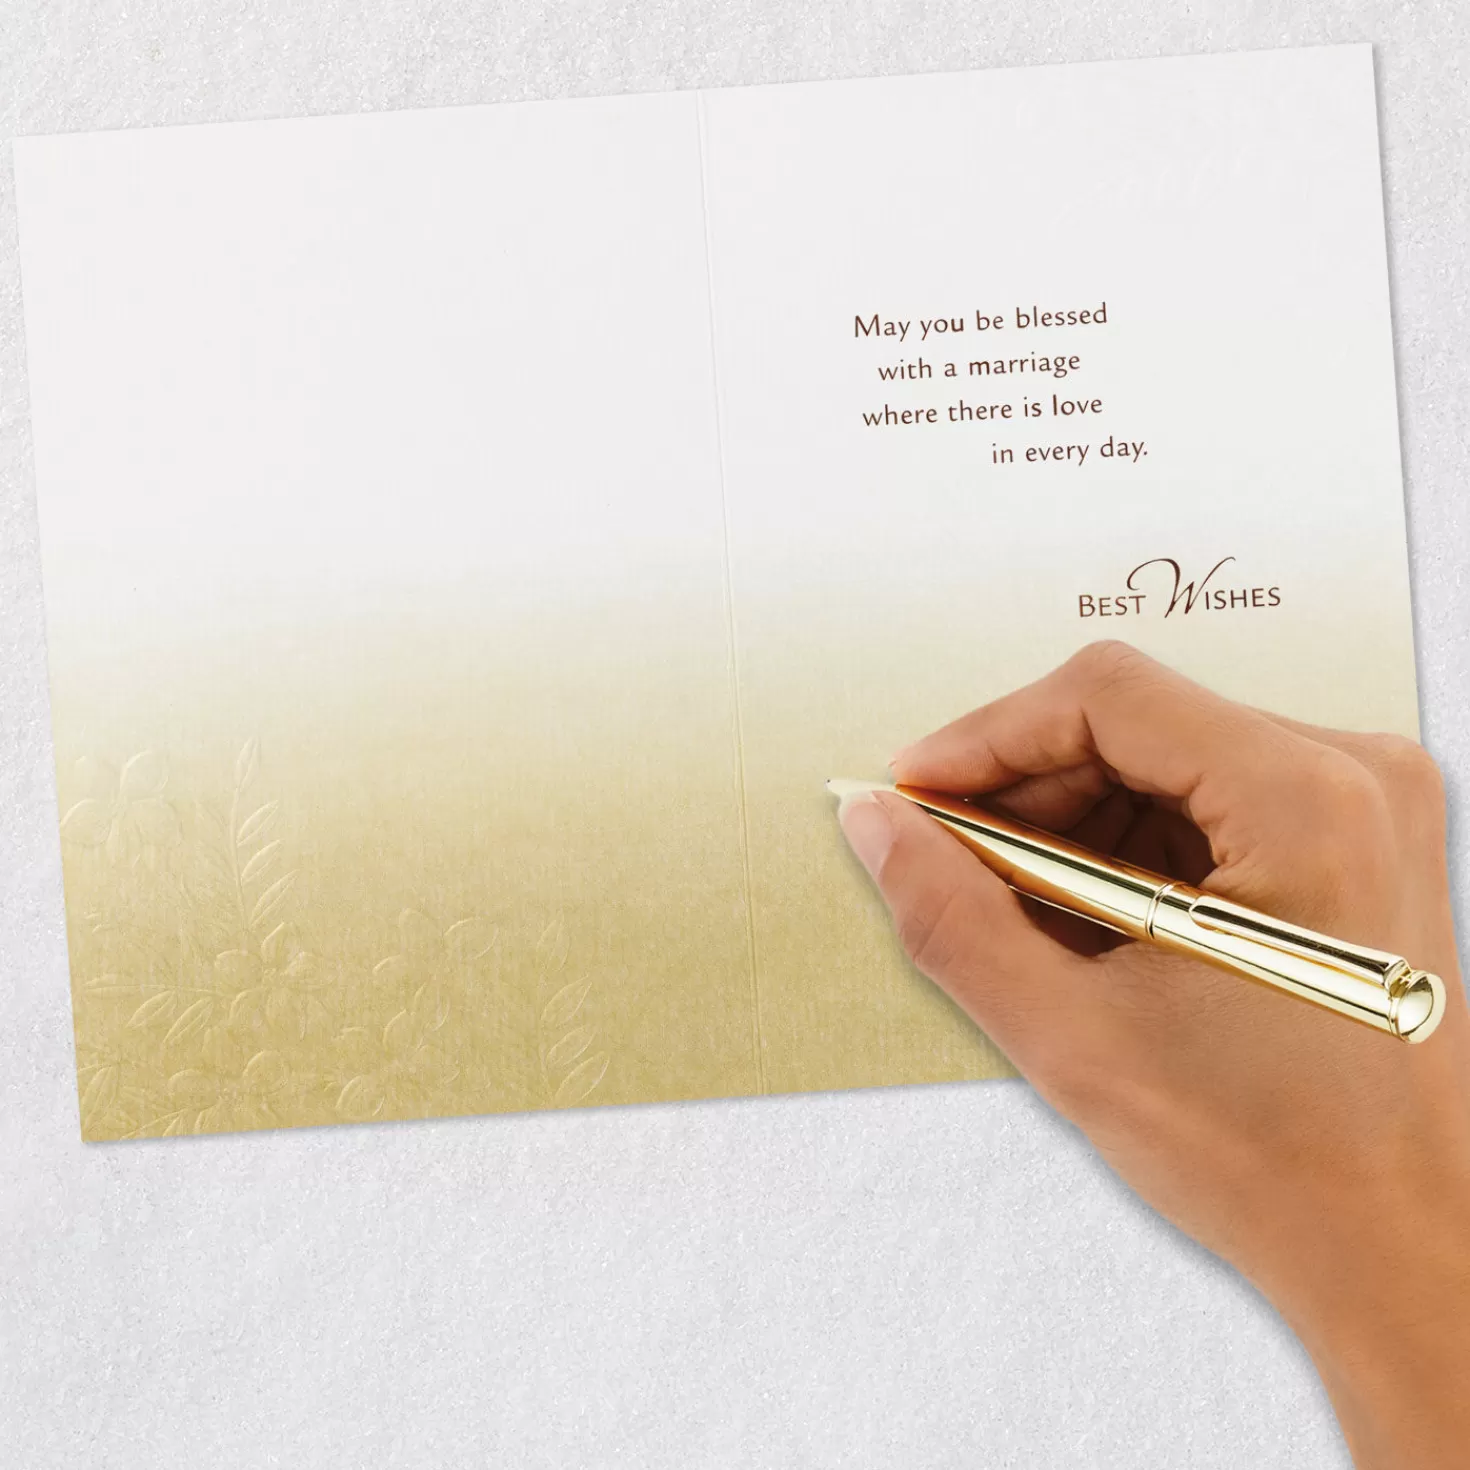 May you be blessed
with a marriage
where there is love
in every day.
BEST WISHES